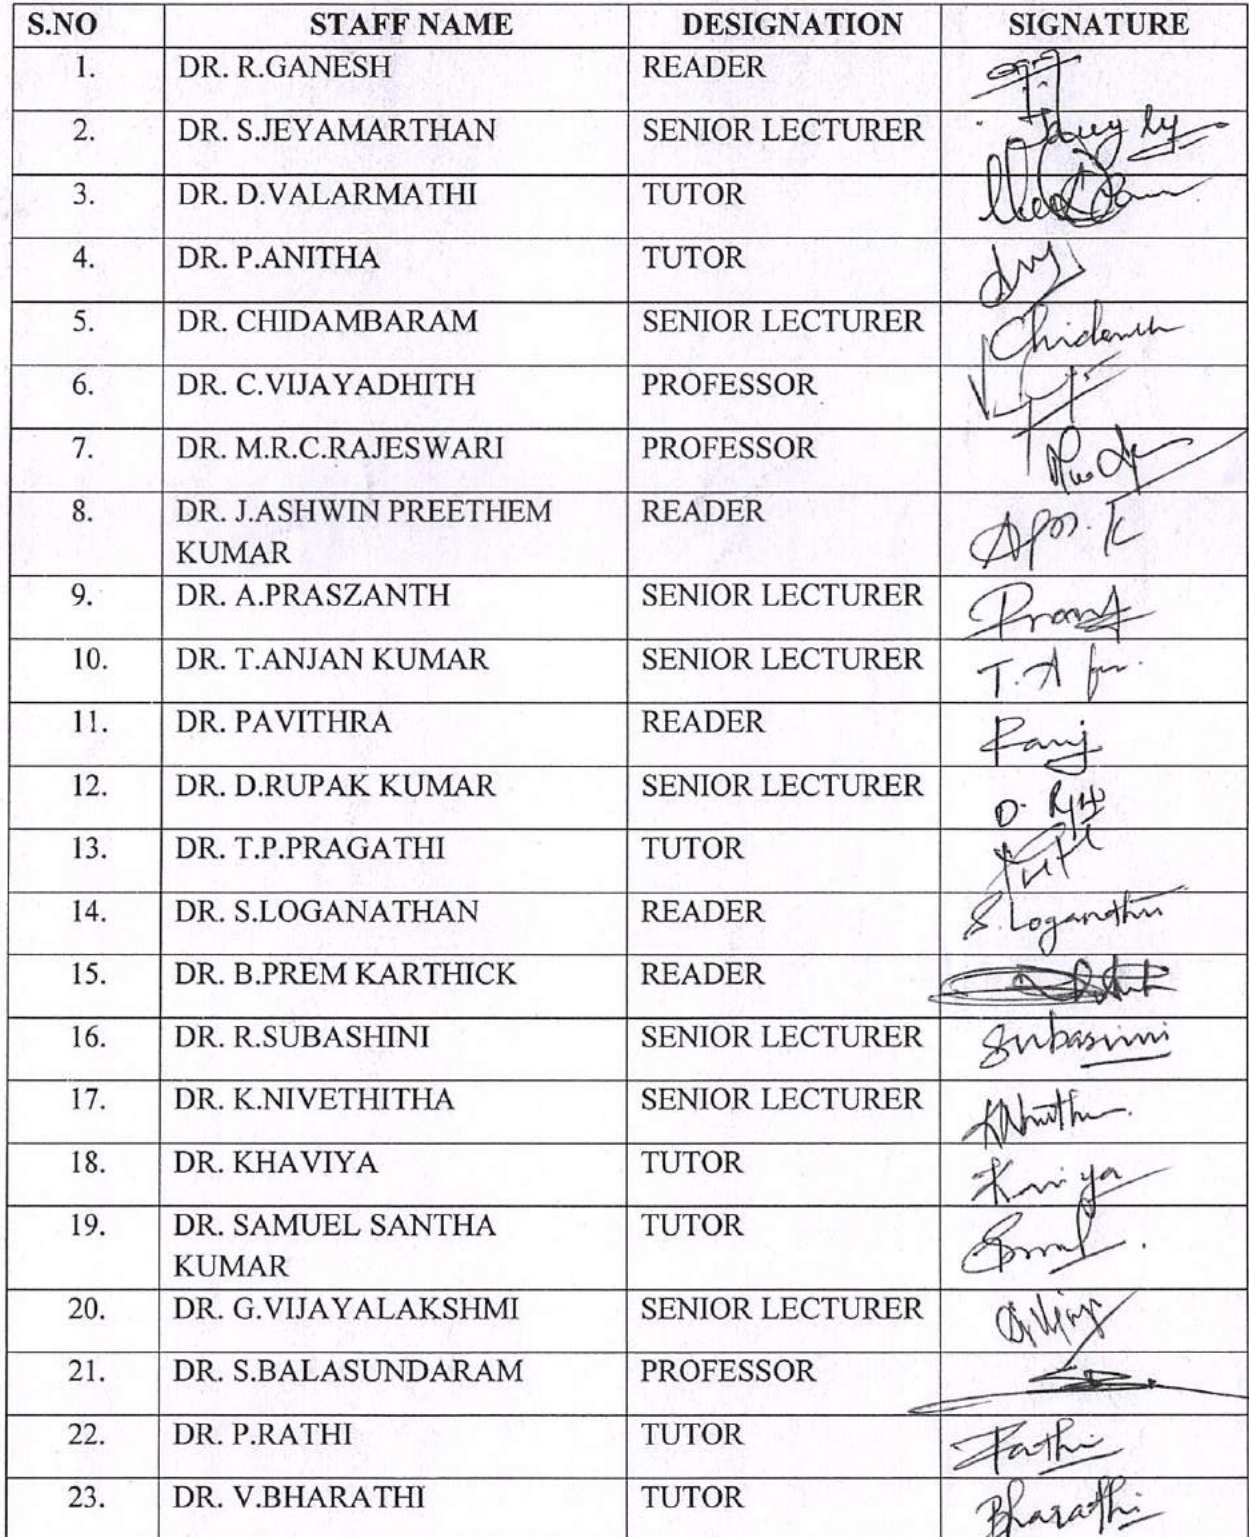 S.NO STAFF NAME DESIGNATION SIGNATURE
1. DR. R.GANESH READER
2. DR. S.JEYAMARTHAN SENIOR LECTURER
3. DR. D.VALARMATHI TUTOR
4. DR. P.ANITHA TUTOR
5. DR. CHIDAMBARAM SENIOR LECTURER
6. DR. C.VIJAYADHITH PROFESSOR
7. DR. M.R.C.RAJESWARI PROFESSOR
8. DR. J.ASHWIN PREETHEM READER
KUMAR
9. DR. A.PRASZANTH SENIOR LECTURER
10. DR. T.ANJAN KUMAR SENIOR LECTURER
11. DR. PAVITHRA READER
12. DR. D.RUPAK KUMAR SENIOR LECTURER
13. DR. T.P.PRAGATHI TUTOR
14. DR. S.LOGANATHAN READER
15. DR. B.PREM KARTHICK READER
16. DR. R.SUBASHINI SENIOR LECTURER
17. DR. K.NIVETHITHA SENIOR LECTURER
18. DR. KHAVIYA TUTOR
19. DR. SAMUEL SANTHA TUTOR
KUMAR
20. DR. G.VIJAYALAKSHMI SENIOR LECTURER
21. DR. S.BALASUNDARAM PROFESSOR
22. DR. P.RATHI TUTOR
23. DR. V.BHARATHI TUTOR Bharathi